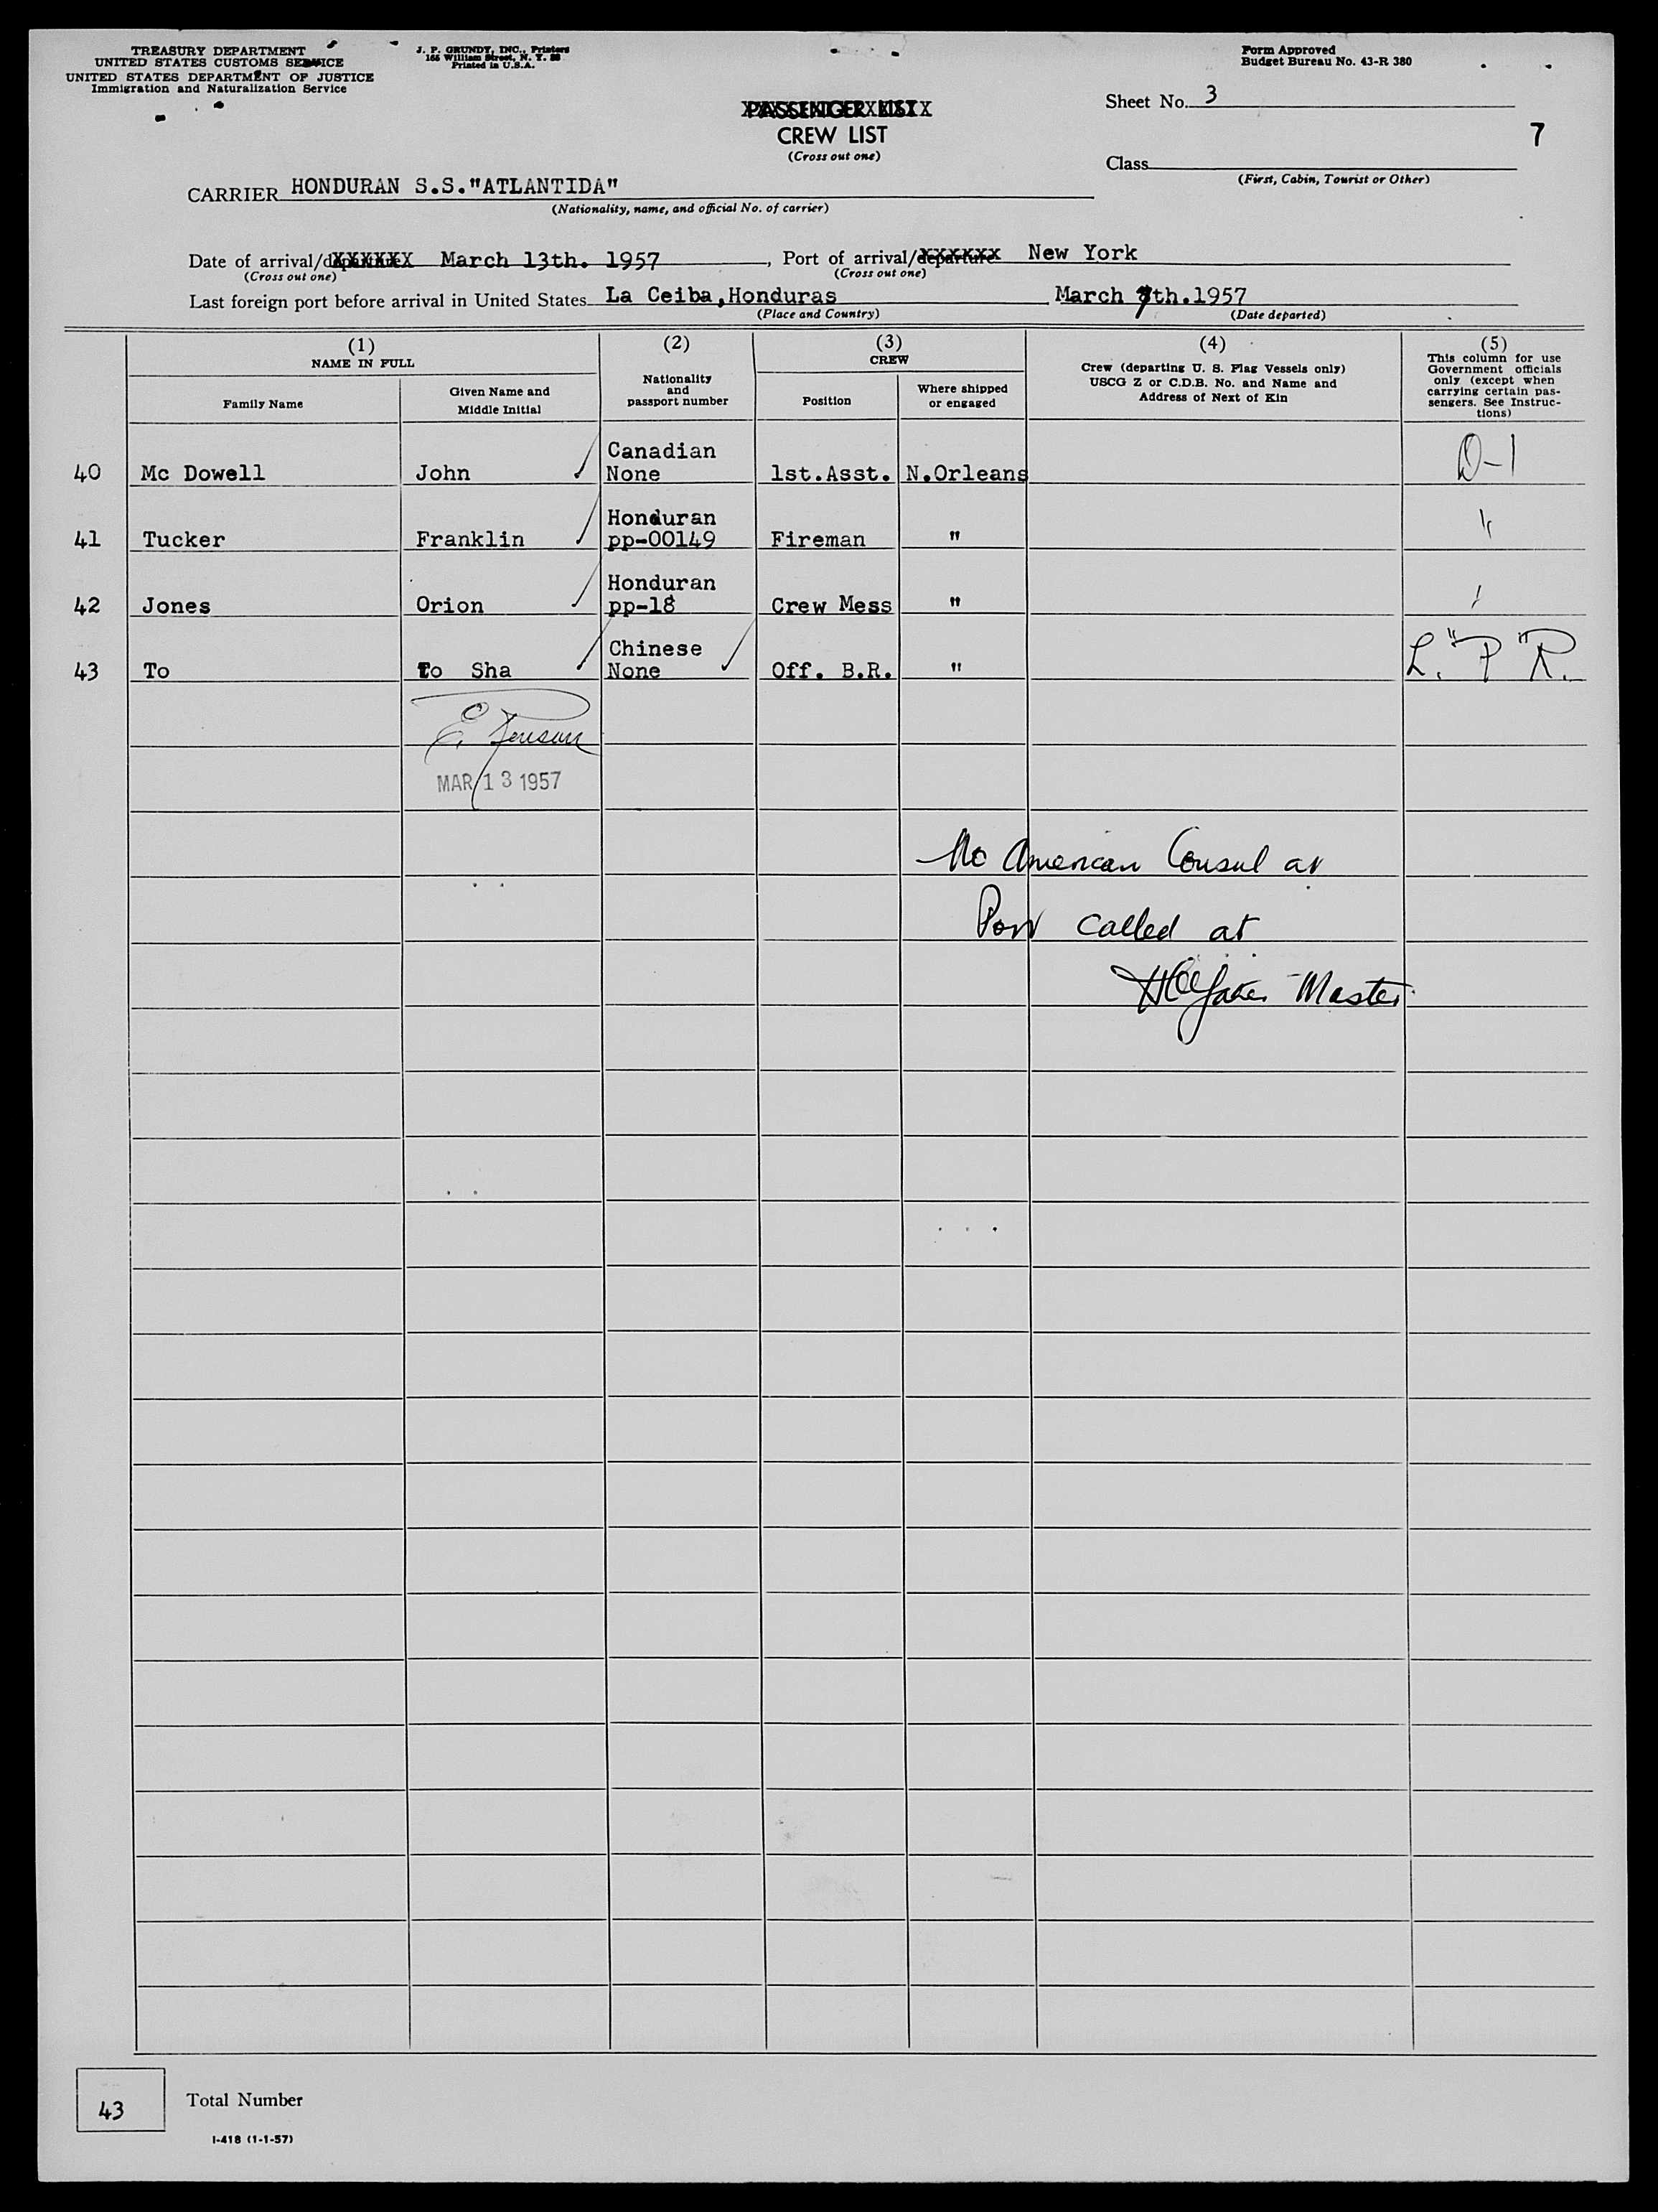 TREASURY DEPARTMENT
UNITED STATES CUSTOMS SERVICE
UNITED STATES DEPARTMENT OF JUSTICE
Immigration and Naturalization Service
J. P. GRUNDY, INC., Printers
Printed in U.S.A.
Form Approved
Budget Bureau No. 43-R 380
Sheet No. 3
7
PASSENGER LIST
CREW LIST
(Cross out one)
Class
(First, Cabin, Tourist or Other)
CARRIER HONDURAN S.S."ATLANTIDA"
(Nationality, name, and official No. of carrier)
Date of arrival/departure March 13th. 1957, Port of arrival/departure New York
(Cross out one) (Cross out one)
Last foreign port before arrival in United States La Ceiba,Honduras March 7th.1957
(Place and Country) (Date departed)
(1) (2) (3) (4) (5)
NAME IN FULL
Family Name
Given Name and Middle Initial
Nationality and passport number
CREW
Position
Where shipped or engaged
Crew (departing U. S. Flag Vessels only)
USCG Z or C.D.B. No. and Name and
Address of Next of Kin
This column for use
Government officials
only (except when
carrying certain pas-
sengers. See Instruc-
tions)
Canadian
40 Mc Dowell John None 1st.Asst. N.Orleans D-1
Honduran
41 Tucker Franklin pp-00149 Fireman " "
Honduran
42 Jones Orion pp-18 Crew Mess " "
Chinese
43 To To Sha None Off. B.R. " L. P. R.
E.
MAR 13 1957
No American Consul at
Port called at
Master
43 Total Number
I-418 (1-1-57)